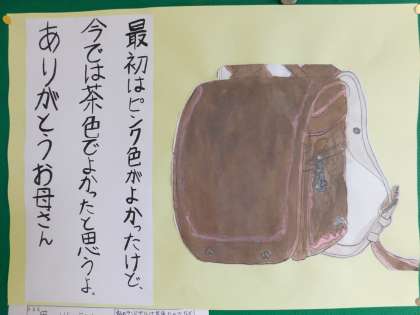 最初はピンク色がよかったけど、
今では茶色でよかったと思うよ。
ありがとうお母さん